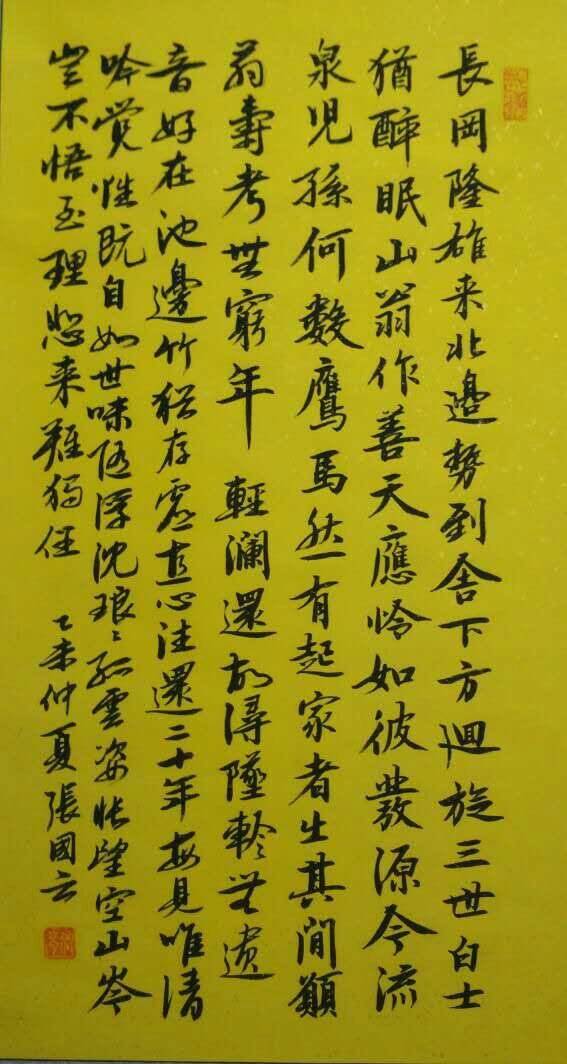 長岡隆雄来北邉勢到舍下方迴旋三世白士
猶醉眠山翁作善天應怜如彼發源今流
泉兒孫何數鷹馬然有起家者生其間願
翁壽考無窮年 輕瀾還故潯墜軫無遺
音好在池邊竹猶存虛直心往還二十年每見唯清
吟覺性既自如世味隨浮沈琅〻孤雲姿悵望空山岑
豈不悟至理悲来難獨任 乙未仲夏張國云